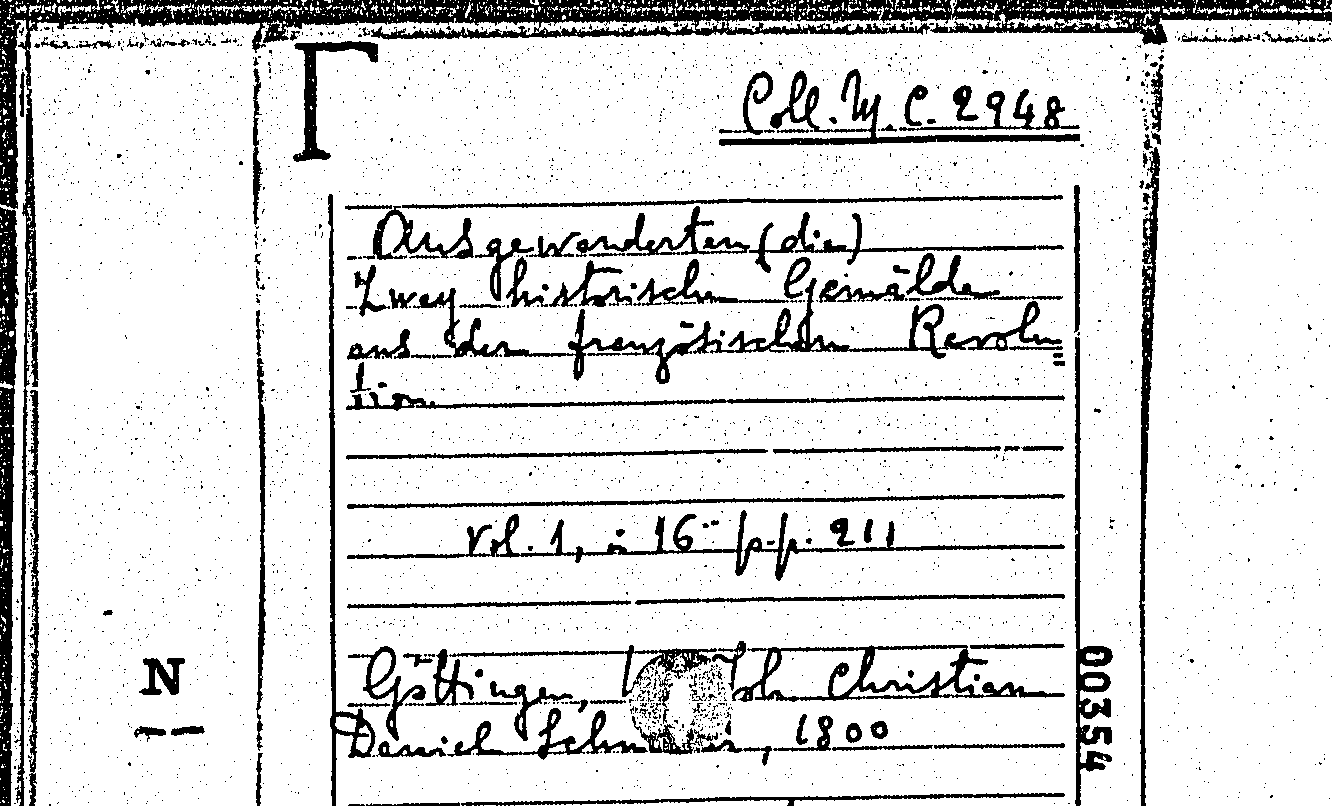 Γ
Coll. M. C. 2948
Ausgewanderten (die)
Zwey historische Gemälde
aus der französischen Revolu
tion.
Vol. 1, in 16° p.p. 211
Göttingen, Joh. Christian
Daniel, 1800
N
00354